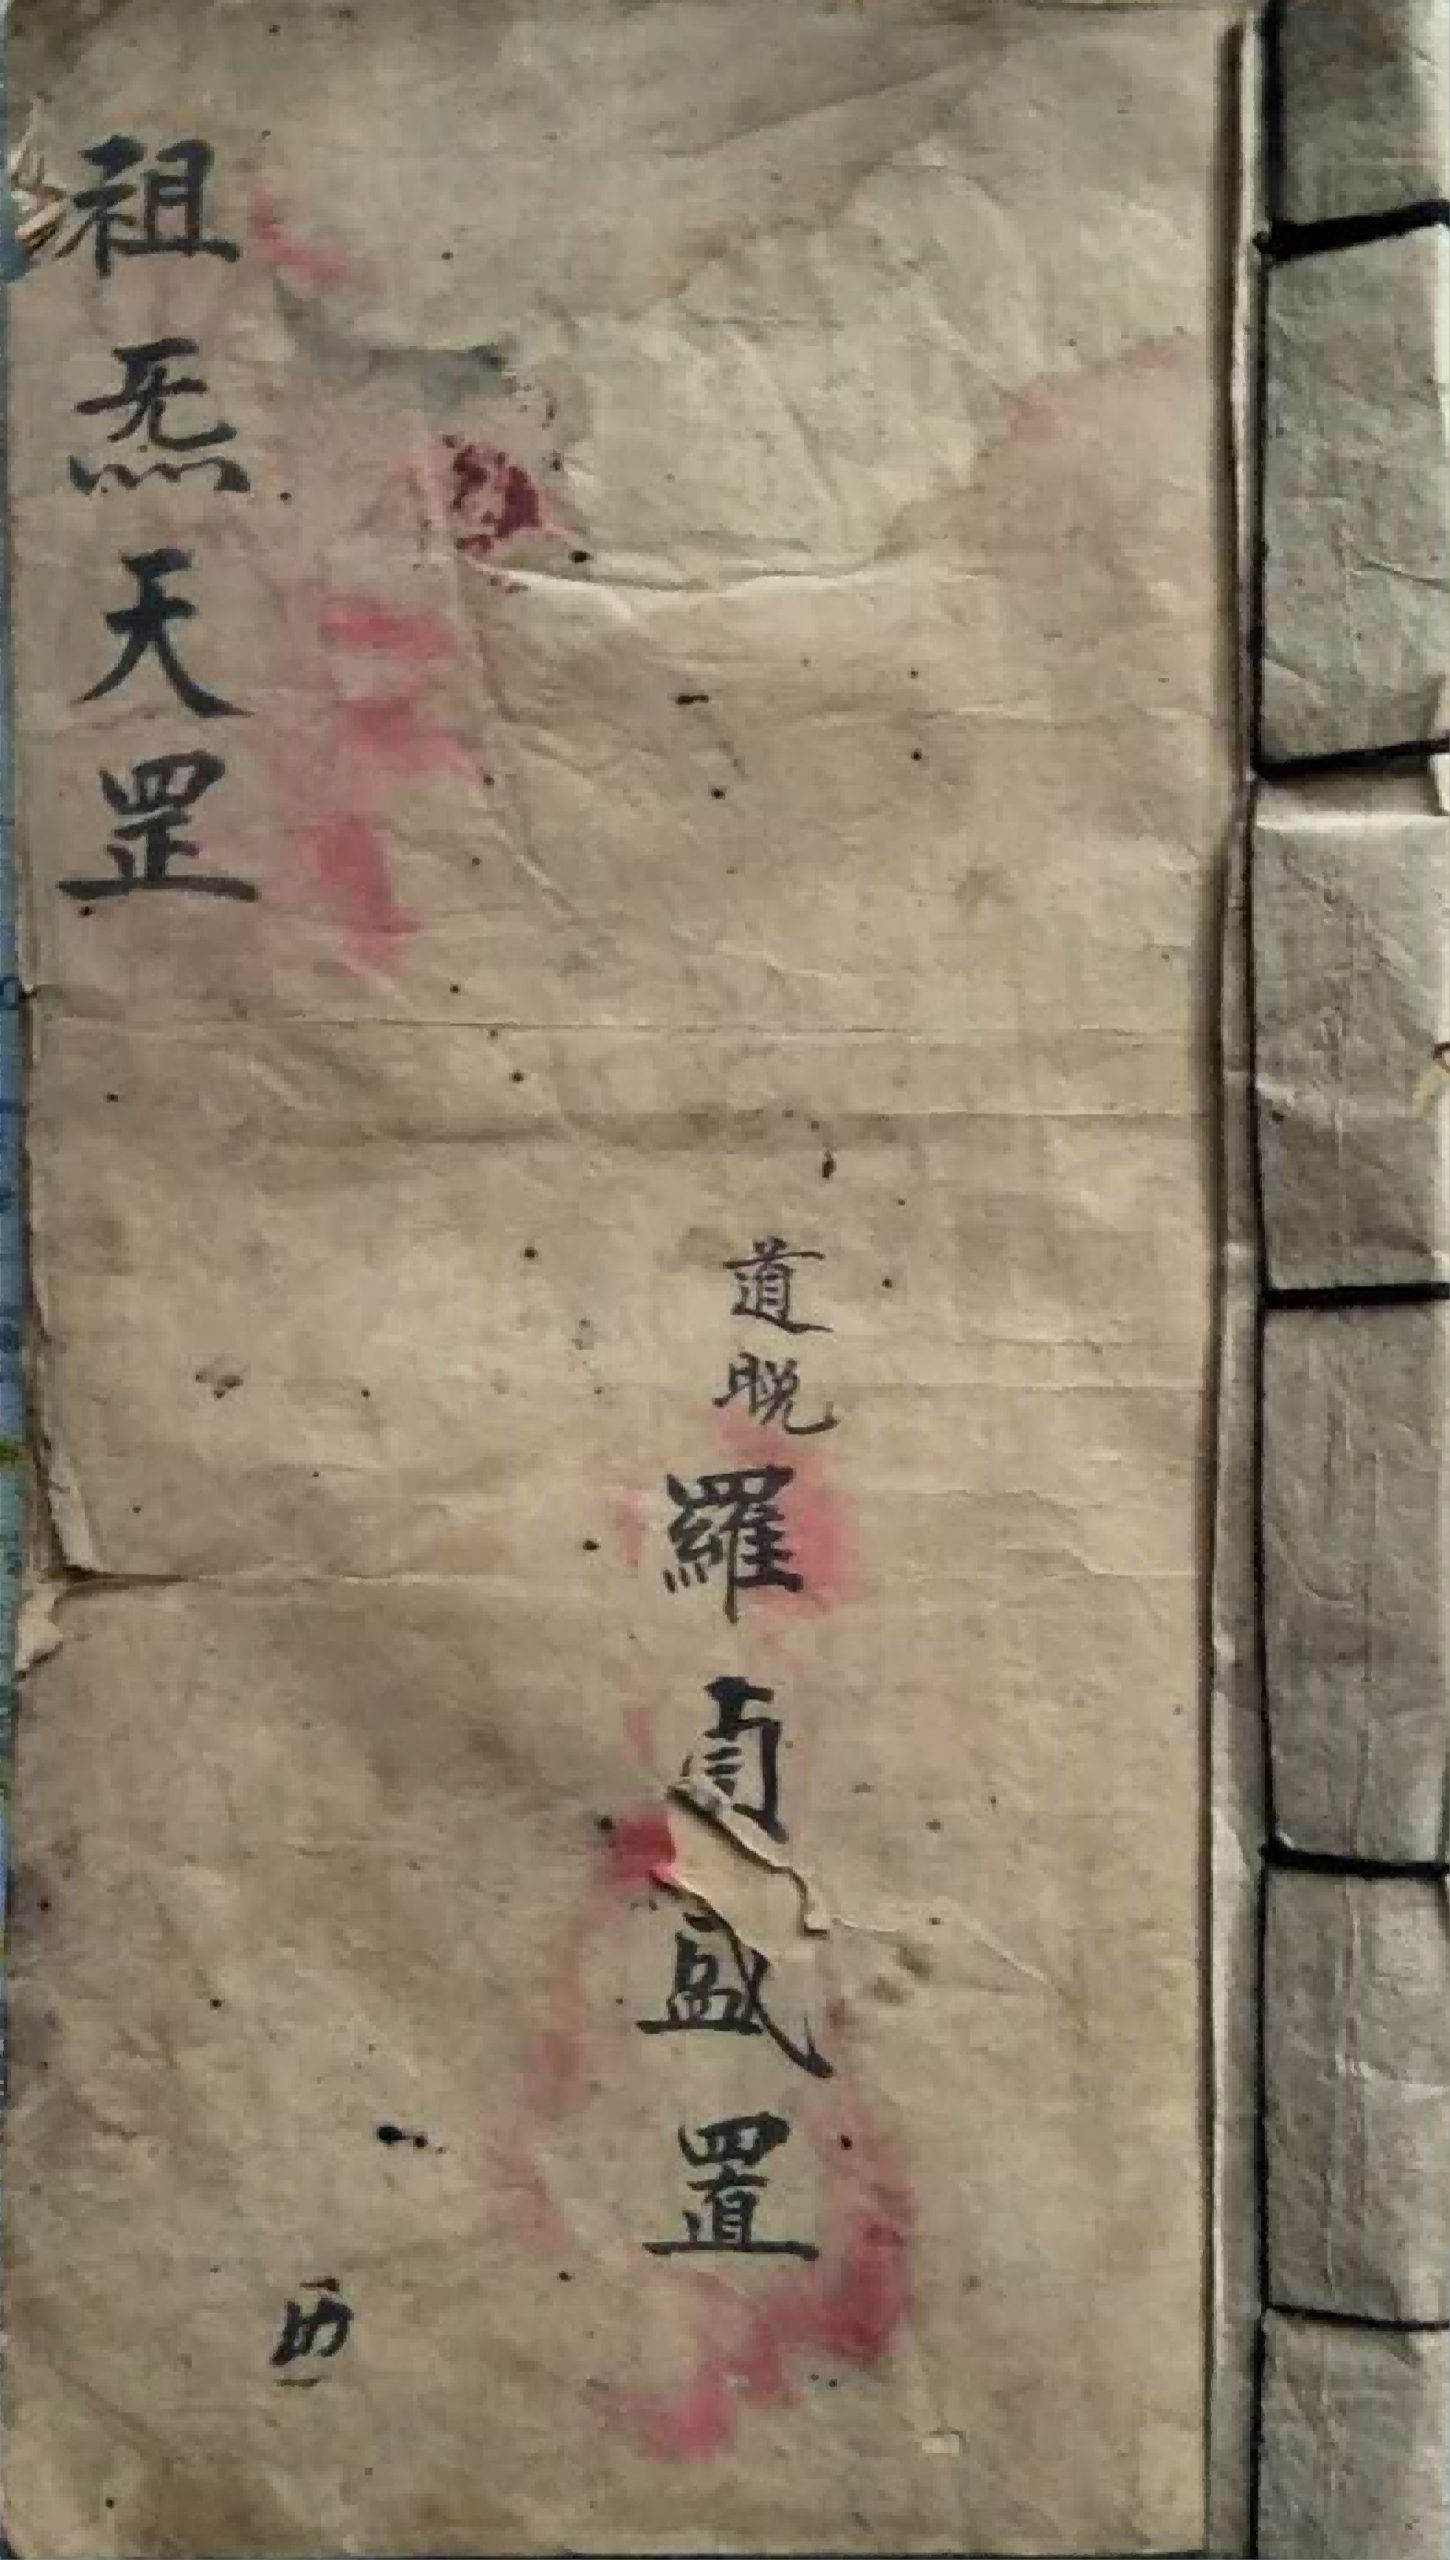 道脱
羅貞盛置
祖炁天罡